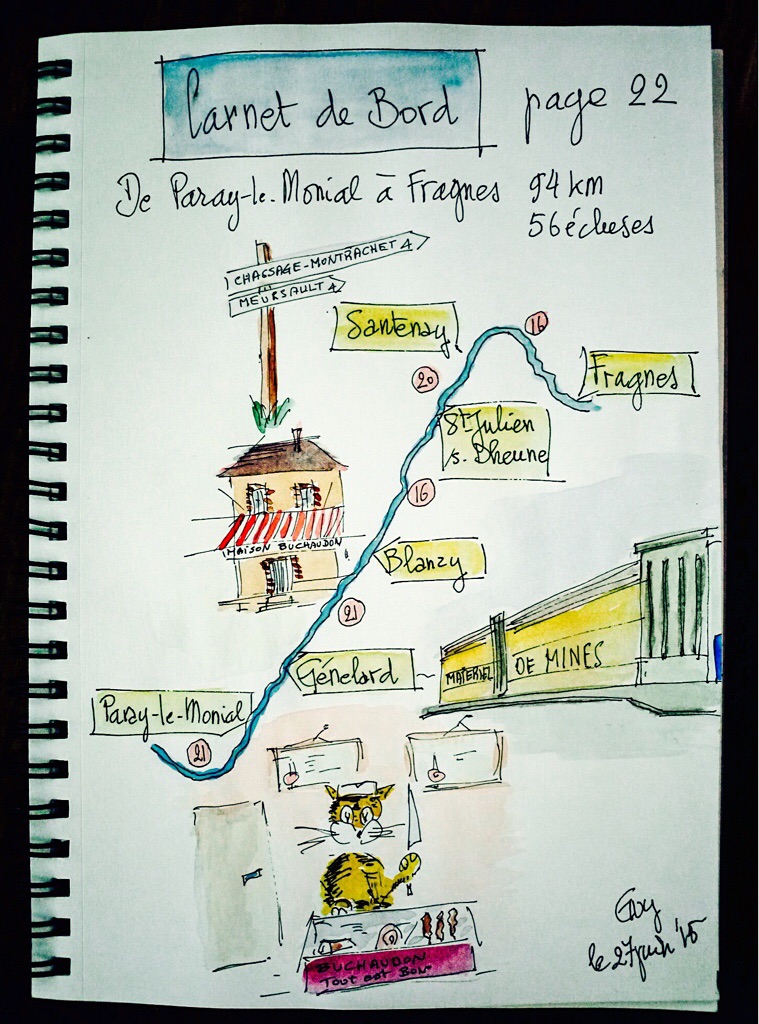 Carnet de Bord
page 22
De Paray-le-Monial à Fragnes 94 km
56 écluses
CHASSAGE-MONTRACHET 4
MEURSAULT 4
Santenay
16
Fragnes
20
St Julien
s. Dheune
16
MAISON BUCHAUDON
Blanzy
21
Génelard
MATERIEL DE MINES
Paray-le-Monial
21
BUCHAUDON
TOUT EST BON
Guy
le 27 juin '15